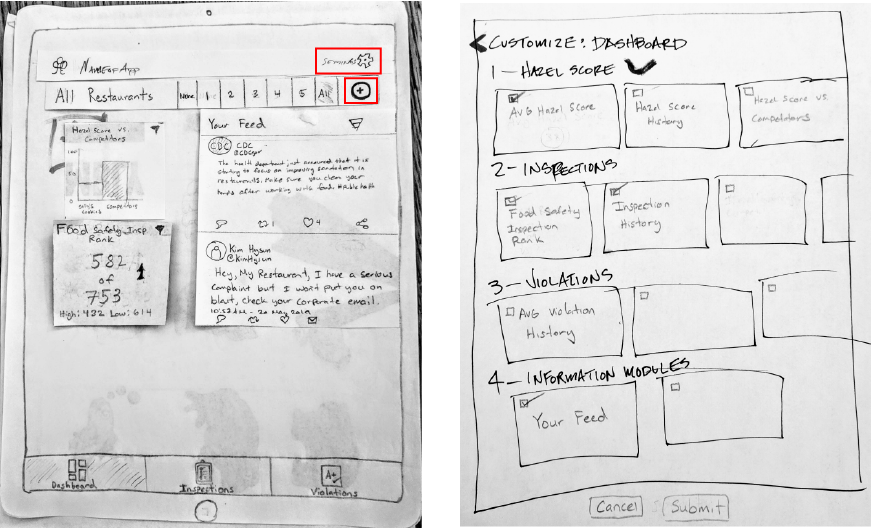 Name of App
Settings
All Restaurants
None 1 2 3 4 5 All +
Hazel Score vs.
Competitors
100
50
0
competitors
Food Safety Insp.
Rank
582
of
753
High: 432 Low: 614
Your Feed
CDC CDC
@CDCgov
The health department just announced that it is
starting to focus on improving sanitation in
restaurants. Make sure you clean your
hands after working with food. #PublicHealth
1 4
Kim HySun
@KimHysun
Hey, My Restaurant, I have a serious
complaint but I won't put you on
blast, check your corporate email.
10:52 AM - 20 May 2019
Dashboard
Inspections
A+
Violations
CUSTOMIZE: DASHBOARD
1 - HAZEL SCORE
Avg Hazel Score
Hazel Score
History
Hazel Score vs.
Competitors
2 - INSPECTIONS
Food Safety
Inspection
Rank
Inspection
History
3 - VIOLATIONS
Avg Violation
History
4 - INFORMATION MODULES
Your Feed
Cancel
Submit